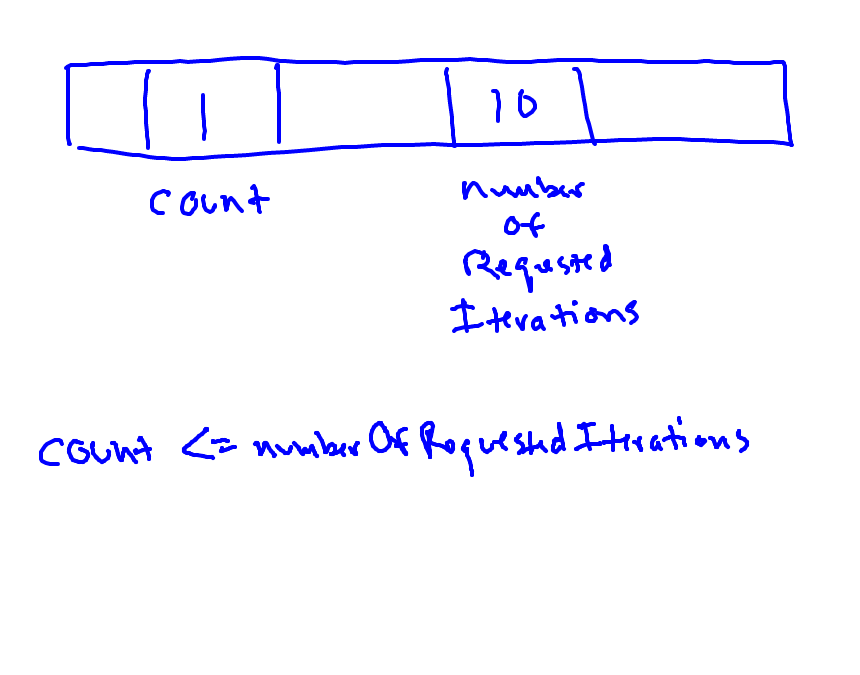 1 10
count
number
of
Requested
Iterations
count <= numberOfRequestedIterations